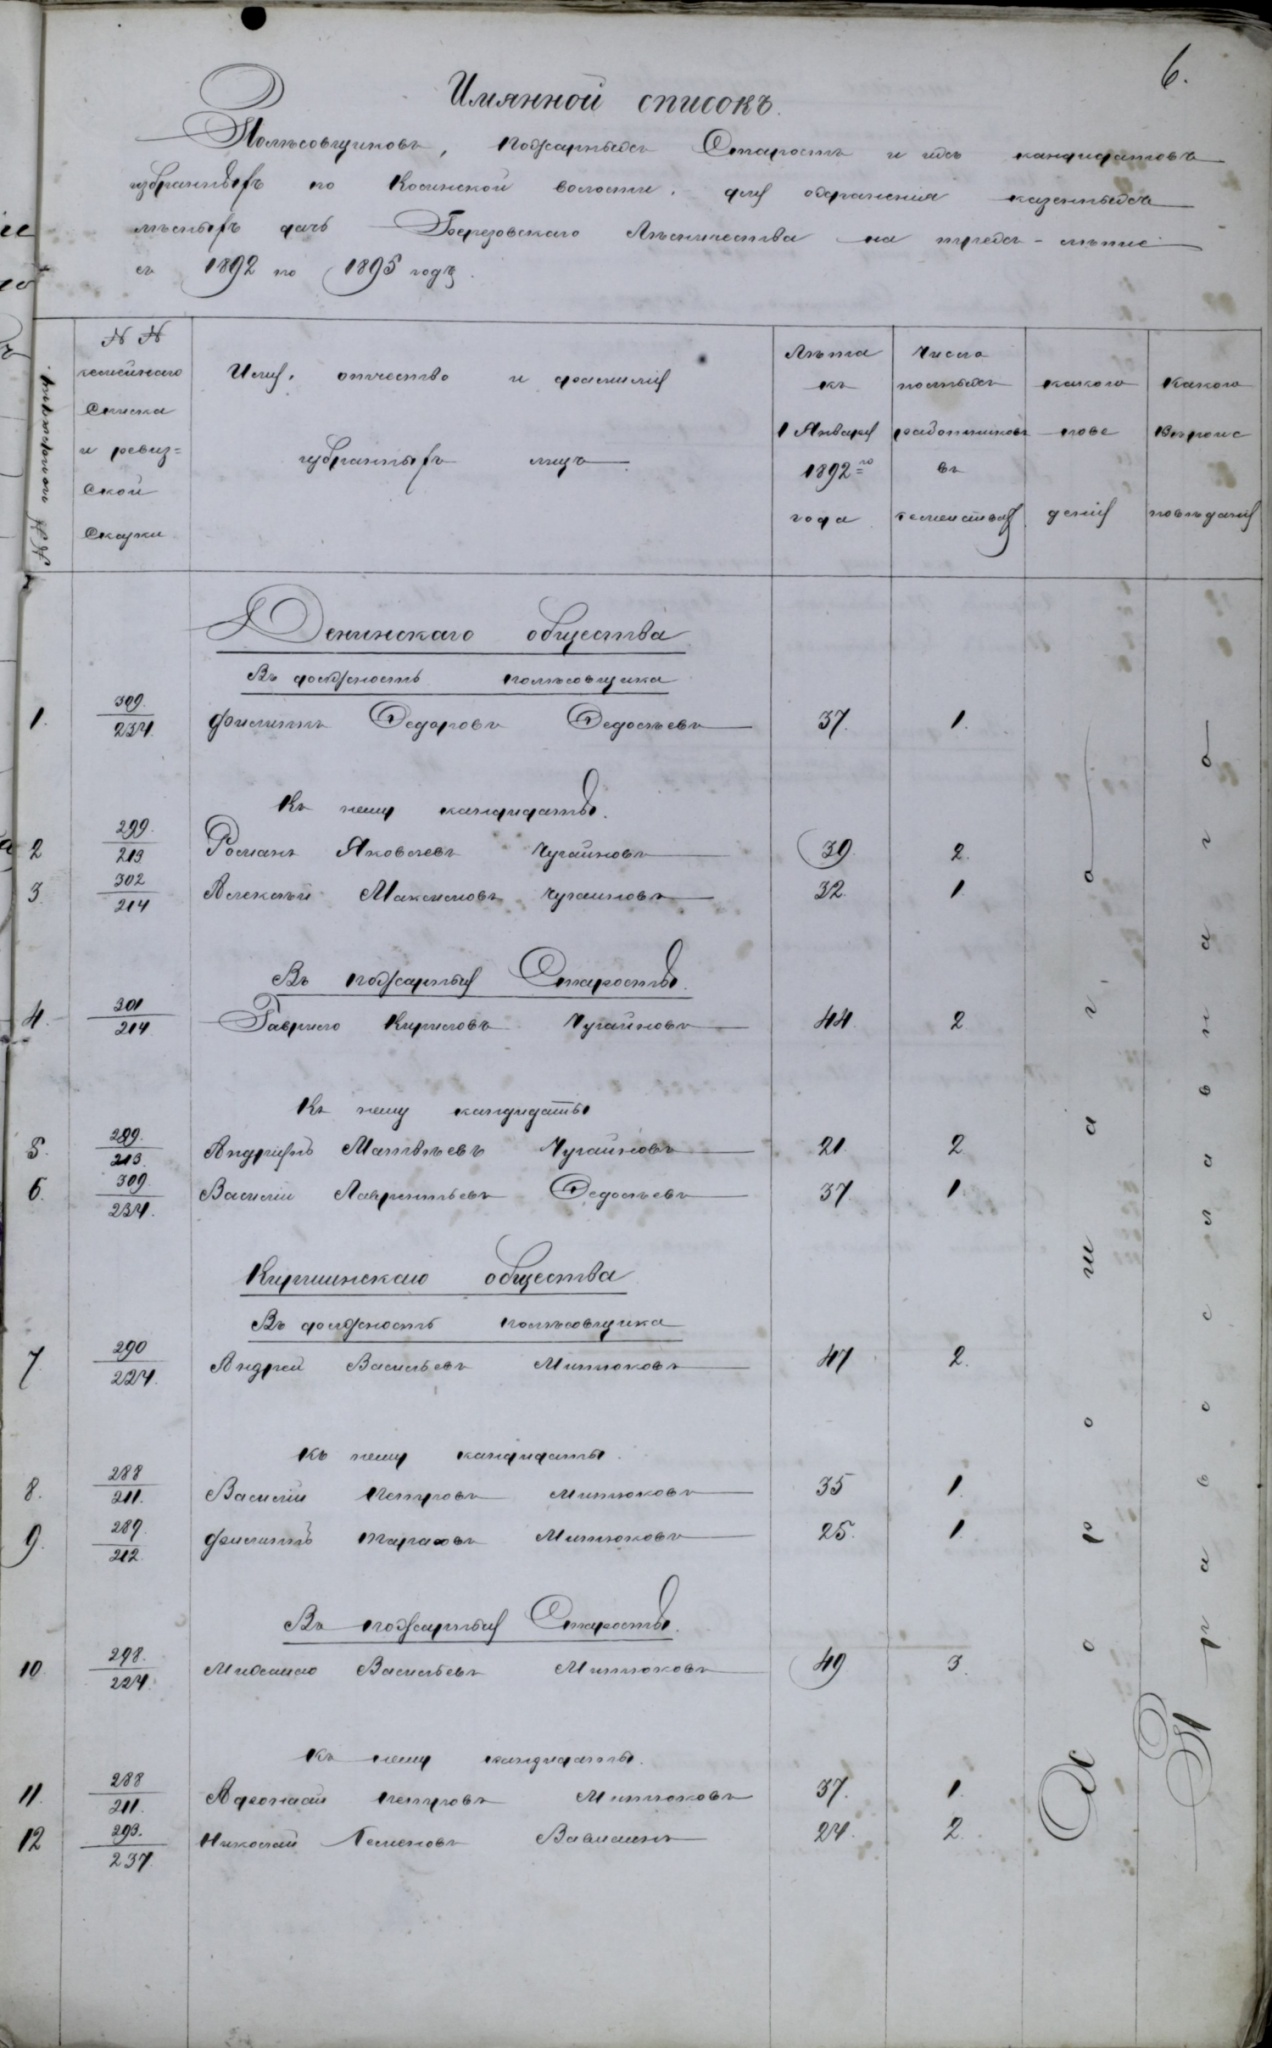 6.
Имянной списокъ.
Полѣсовщиковъ, пожарныхъ Старостъ и ихъ кандидатовъ
избранныхъ по Косинской волости, для охраненія казенныхъ
лѣсныхъ дачъ Березовскаго Лѣсничества на трехъ-лѣтіе
съ 1892 по 1895 годъ.
№№ по порядку.
№ №
семейнаго
Списка
и ревиз=
ской
Сказки
Имя, отчество и фамилія
избранныхъ лицъ
Лѣта
къ
1 Января
1892 го
года
Число
полныхъ
работниковъ
въ
семействѣ
какого
пове
денія
Какого
Вѣроис
повѣданія
Денинскаго общества
Въ должность полѣсовщика
1. 309. 234. Филиппъ Федоровъ Федосѣевъ 37. 1.
Къ нему кандидаты.
2 299. 213 Романъ Яковлевъ Чугайновъ 39. 2.
3. 302 214 Алексѣй Максимовъ Чугайновъ 32. 1.
Въ пожарныя Старосты.
4. 301 214 Гаврило Кириловъ Чугайновъ 44. 2
Къ нему кандидаты
5. 289. 213. Андріянъ Матвѣевъ Чугайновъ 21. 2
6. 309. 234. Василій Лаврентьевъ Федосѣевъ 37. 1.
Киршинскаго общества
Въ должность полѣсовщика
7. 290 224. Андрей Васильевъ Митюковъ 47 2.
Къ нему кандидаты.
8. 288 211. Василій Петровъ Митюковъ 35 1.
9. 289. 212. Филиппъ Тарасовъ Митюковъ 25. 1.
Въ пожарныя Старосты.
10. 298. 224. Михайло Васильевъ Митюковъ 49 3.
Къ нему кандидаты.
11. 288 211. Афонасій Петровъ Митюковъ 37. 1.
12 293. 237. Николай Семеновъ Вавилинъ 24. 2.
Хорошаго
Православнаго